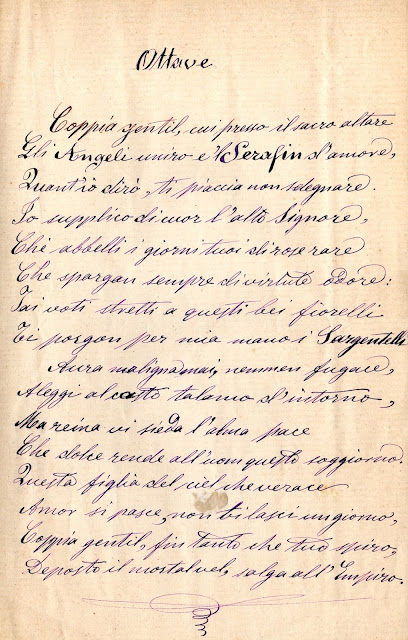 Ottave
Coppia gentil, cui presso il sacro altare
Gli Angeli uniro e il Serafin d'amore,
Quant'io dirò, ti piaccia non sdegnare.
Io supplico di cuor l'alto Signore,
Chè abbelli i giorni tuoi di rose rare
Che spargan sempre di virtute odore:
Tai voti stretti a questi bei fiorelli
Ti porgon per mia mano i Sargentelli
Aura maligna mai, nemmen fugace,
Aleggi al casto talamo d'intorno,
Ma reina vi sieda l'alma pace
Che dolce rende all'uom questo soggiorno.
Questa figlia del ciel che verace
Amor si pasce, non ti lasci un giorno,
Coppia gentil, fin tanto che tuo spiro,
Deposto il mortal vel, salga all'Empiro.